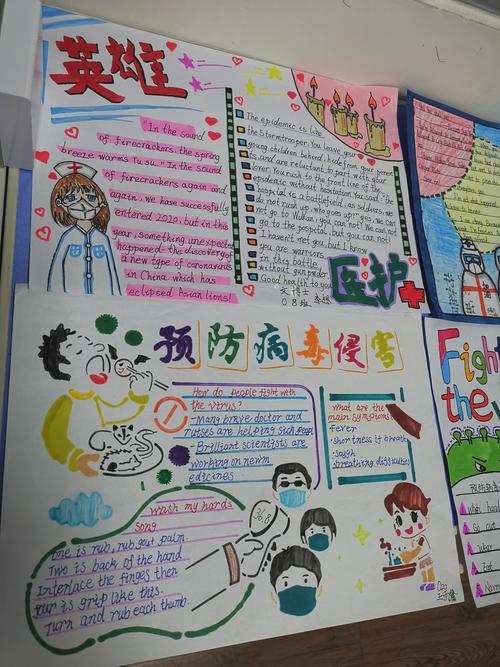 英雄
"In the sound
of firecrackers, the spring
breeze warms Tu su." In the sound
of firecrackers again and
again, we have successfully
entered 2020, but in this
year, something unexpected
happened-the discovery of
a new type of coronavirus
in China which has
eclipsed Asian lions!
The epidemic is like
the Stormtrooper. You leave your
young children behind, hide from your parents
and are reluctant to part with your
lover. You rush to the front line of the
epidemic without hesitation. You said: "the
hospital is a battlefield, as soldiers, we
do not rush up, who go up!" yes, we can
not go to Wuhan, you can not! We can not
go to the hospital, but you can not!
I haven't met you, but I know
you are warriors.
In this battle
without gunpowder
Good health to you
医护
预防病毒侵害
How do people fight with
the virus?
-Many brave doctor and
nurses are helping sick peopl
-Brilliant scientists are
working on newm
edicines
What are the
main symptoms?
-Fever
-shortness th breath
-cough
-breathing difficulties
wash my hands
song
One is rub, rub your palm.
Two is back of the hand
Interlace the finges then
four is grip like this.
Turn and rub each thumb.
36.8
Fight
the